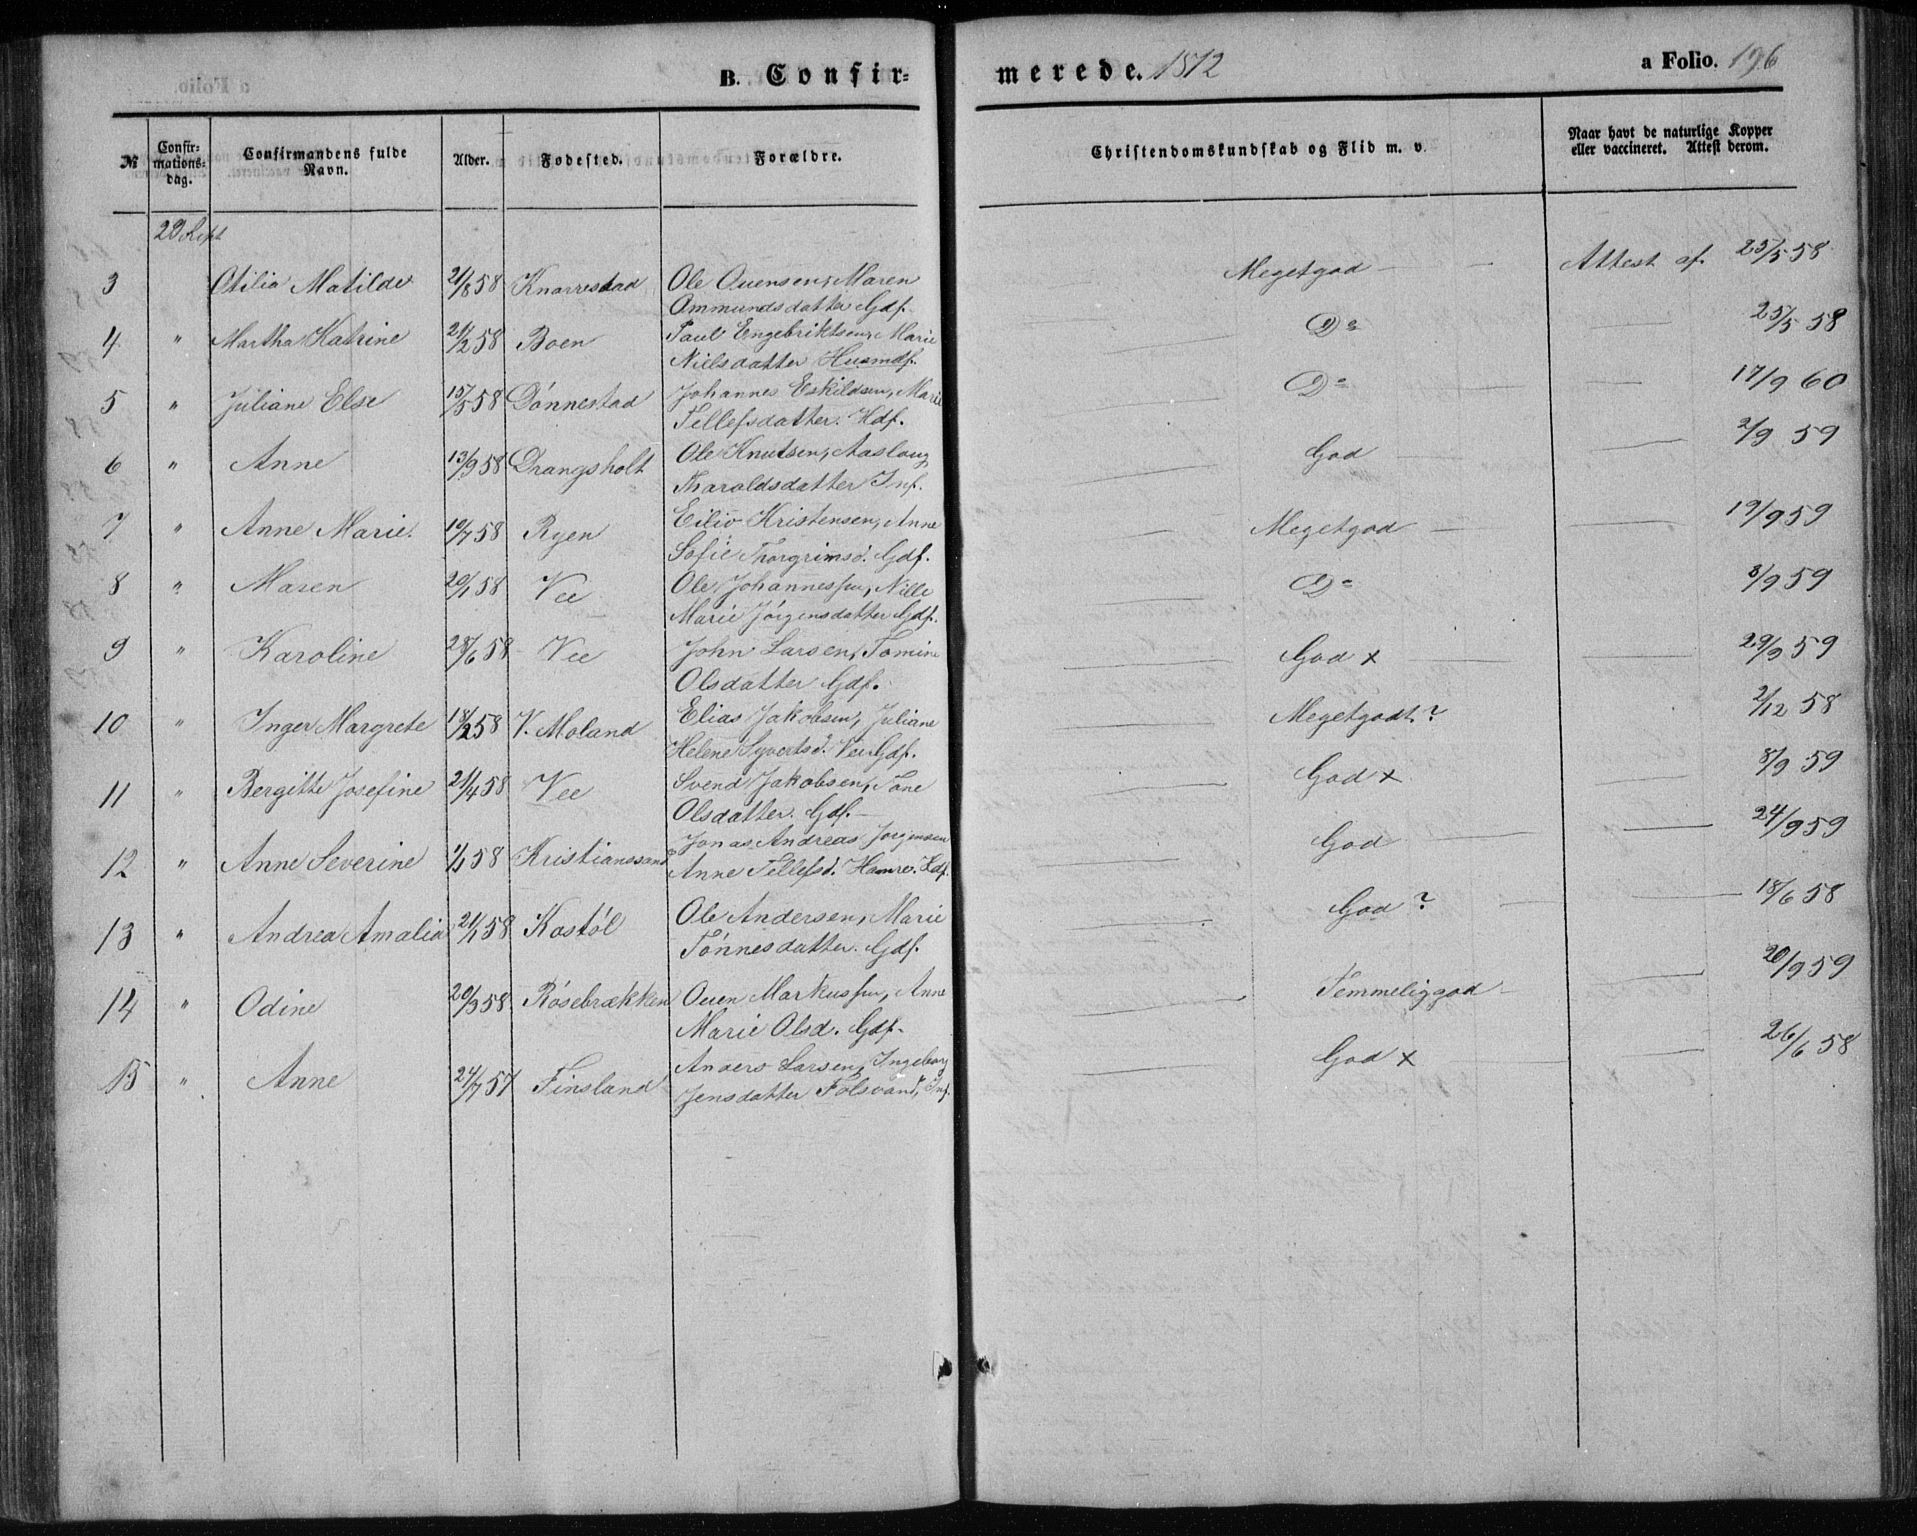 B. Confir= merede. 1872 a Folio. 196
№ Confir-mations-dag. Confirmandens fulde Navn. Alder. Fødested. Forældre. Christendomskundskab og Flid m. v. Naar havt de naturlige Kopper eller vaccineret. Attest derom.
29 Sept
3 Otilia Matilde 21/8 58 Knarrestad Ole Ouensen, Maren Megetgod Attest af. 25/5 58
Ommundsdatter Gdf.
4 " Martha Katrine 21/2 58 Boen Paul Engebriktsen, Marie Do 25/5 58
Nielsdatter Husmdf.
5 " Juliane Else 15/5 58 Dønnestad Johannes Eskildsen, Marie Do 17/9 60
Tellefsdatter. Hdf.
6 " Anne 13/9 58 Drangsholt Ole Knutsen, Aaslaug God 2/9 59
Haroldsdatter Inf.
7 " Anne Marie. 10/7 58 Ryen Eiliv Kristensen, Anne Megetgod 19/9 59
Sofie Thorgrimsd. Gdf.
8 " Maren 20/1 58 Vee Ole Johannessen, Nille Do 8/9 59
Marie Jörgensdatter Gdf.
9 " Karoline 28/6 58 Vee John Larsen, Tomine God x 29/9 59
Olsdatter Gdf.
10 " Inger Margrete 18/2 58 V. Moland Elias Jakobsen, Juliane Megetgodt? 2/12 58
Helene Syvertsd. Vee Gdf.
11 " Bergitte Josefine 21/4 58 Vee Svend Jakobsen, Tone God x 8/9 59
Olsdatter. Gdf.
12 " Anne Severine 58 Kristianssand Jonas Andreas Jorgensen God 24/9 59
Anne Tellefsd. Hamre.
13 " Andrea Amalia 58 Kostöl Ole Andersen, Marie God? 18/6 58
Tönnesdatter. Gdf.
14 " Odine 20/9 58 Rösebrækken Ouen Markussen, Anne Temmeliggod 20/9 59
Marie Olsd. Gdf.
15 " Anne 24/7 57 Finsland Anders Larsen, Ingeborg God x 26/6 58
Jensdatter Fölsvand, Inf.